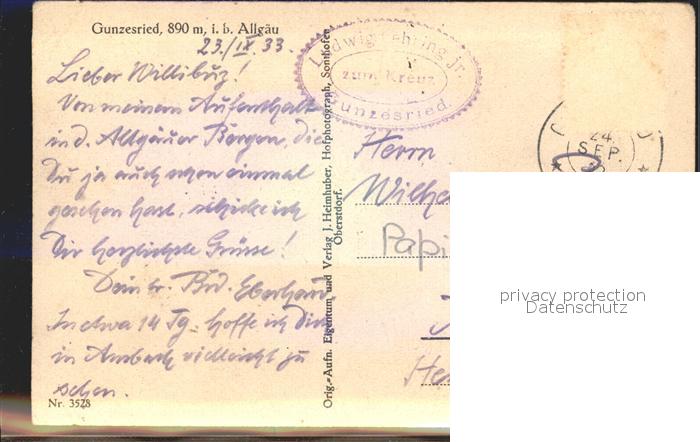 Gunzesried, 890 m, i. b. Allgäu
23./IX.33.
Lieber Willibuz!
Von meinem Aufenthalt
in d. Allgäuer Bergen, die
Du ja auch schon einmal
gesehen hast, schicke ich
Dir herzlichste Grüsse!
Dein tr. Brd. Eberhard
In etwa 14 Tg. hoffe ich Dich
in Ambach vielleicht zu
sehen.
Nr. 3528
Orig.-Aufn. Eigentum und Verlag J. Heimhuber, Hofphotograph, Sonthofen
Oberstdorf.
Ludwig jr.
zum Kreuz
Gunzesried.
24.
SEP.
Herrn
Wilhe
Papi
He
privacy protection
Datenschutz